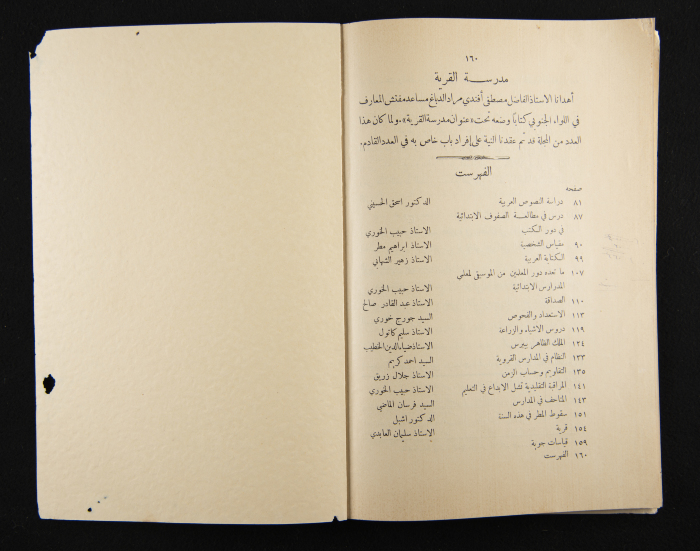 ١٦٠
مدرسة القرية
أهدانا الاستاذ الفاضل مصطفى أفندي مراد الدباغ مساعد مفتش المعارف
في اللواء الجنوبي كتاباً وضعه تحت «عنوان مدرسة القرية»، ولما كان هذا
العدد من المجلة قد تم عقدنا النية على إفراد باب خاص به في العدد القادم.
الفهرست
صفحه
٨١ دراسة النصوص العربية الدكتور اسحق الحسيني
٨٧ درس في مطالعة الصفوف الابتدائية
في دور الكتب الاستاذ حبيب الخوري
٩٠ مقياس الشخصية الاستاذ ابراهيم مطر
٩٩ الكتابة العربية الاستاذ زهير الشهابي
١٠٧ ما تعده دور المعلمين من الموسيقى لمعلمي
المدارس الابتدائية الاستاذ حبيب الخوري
١١٠ الصداقة الاستاذ عبد القادر صالح
١١٣ الاستعداد والفحوص السيد جورج خوري
١١٩ دروس الاشياء والزراعة الاستاذ سليم كاتول
١٢٤ الملك الظاهر بيبرس الاستاذ ضياء الدين الخطيب
١٣٣ النظام في المدارس القروية السيد احمد كريم
١٣٥ التقاويم وحساب الزمن الاستاذ جلال زريق
١٤١ المراقبة التقليدية تشل الابداع في التعليم الاستاذ حبيب الخوري
١٤٣ المتاحف في المدارس السيد فرسان الماضي
١٥١ سقوط المطر في هذه السنة الدكتور اشبل
١٥٤ قرية الاستاذ سليمان العابدي
١٥٩ قياسات جوية
١٦٠ الفهرست